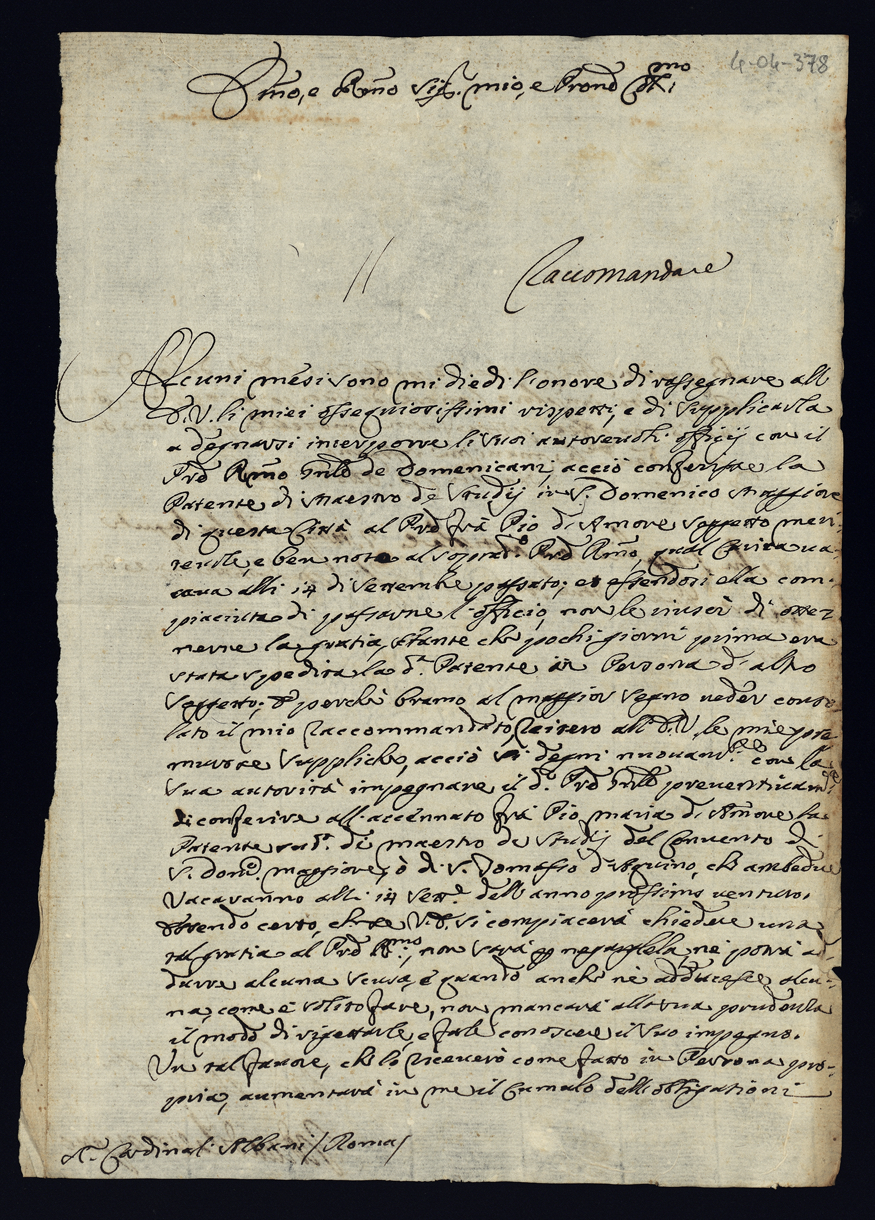 4-04-378
Em̃o, e Rm̃o Sig.r mio, e Prone Col.mo
Raccomandare
Alcuni mesi sono mi diedi l'onore di rassegnare all'
E.V. li miei ossequiosissimi rispetti, e di supplicarla
a degnarsi interporre li suoi autorevoli officij con il
Pre Rm̃o Gnle de Domenicani, acciò conferisse la
Patente di Maestro de Studij in S. Domenico Maggiore
di questa Città al Pre frà Pio d'Amore soggetto meri-
tevole, e ben noto al soprad.o Pre Rm̃o, qual Carica va-
cava alli 14 di Settembre passato; et essendosi ella com-
piaciuta di passarne l'officio, non le riuscì di otte-
nerne la gratia, stante che pochi giorni prima era
stata spedita la d.a Patente in Persona d'altro
soggetto; E perche bramo al maggior segno veder conso-
lato il mio Raccommandato, reitero all'E.V. le mie pre-
murose suppliche, acciò si degni nuovam.te con la
sua autorità impegnare il d.o Pre Gnle preventivam.te
di conferire all'accennato frà Pio maria d'Amore la
Patente sud.a di maestro de Studij del Convento di
S. Dom.co maggiore, ò di S. Tomaso d'Aquino, che ambedue
vacaranno alli 14 Sett.e dell'anno prossimo venturo.
Essendo certo, che se V.E. si compiacerà chiedere una
tal gratia al Pre R.mo, non saprà negarcela, nè potrà ad-
durre alcuna scusa, e quando anche nè adducesse alcu-
na, come è solito fare, non mancarà alla sua prudenza
il modo di rigettarle, e farle conoscere il suo impegno.
Un tal favore, che lo riceverò come fatto in Persona pro-
pria, aumentarà in me il Cumulo dell'obligationi
Cardinal Albani / Roma /